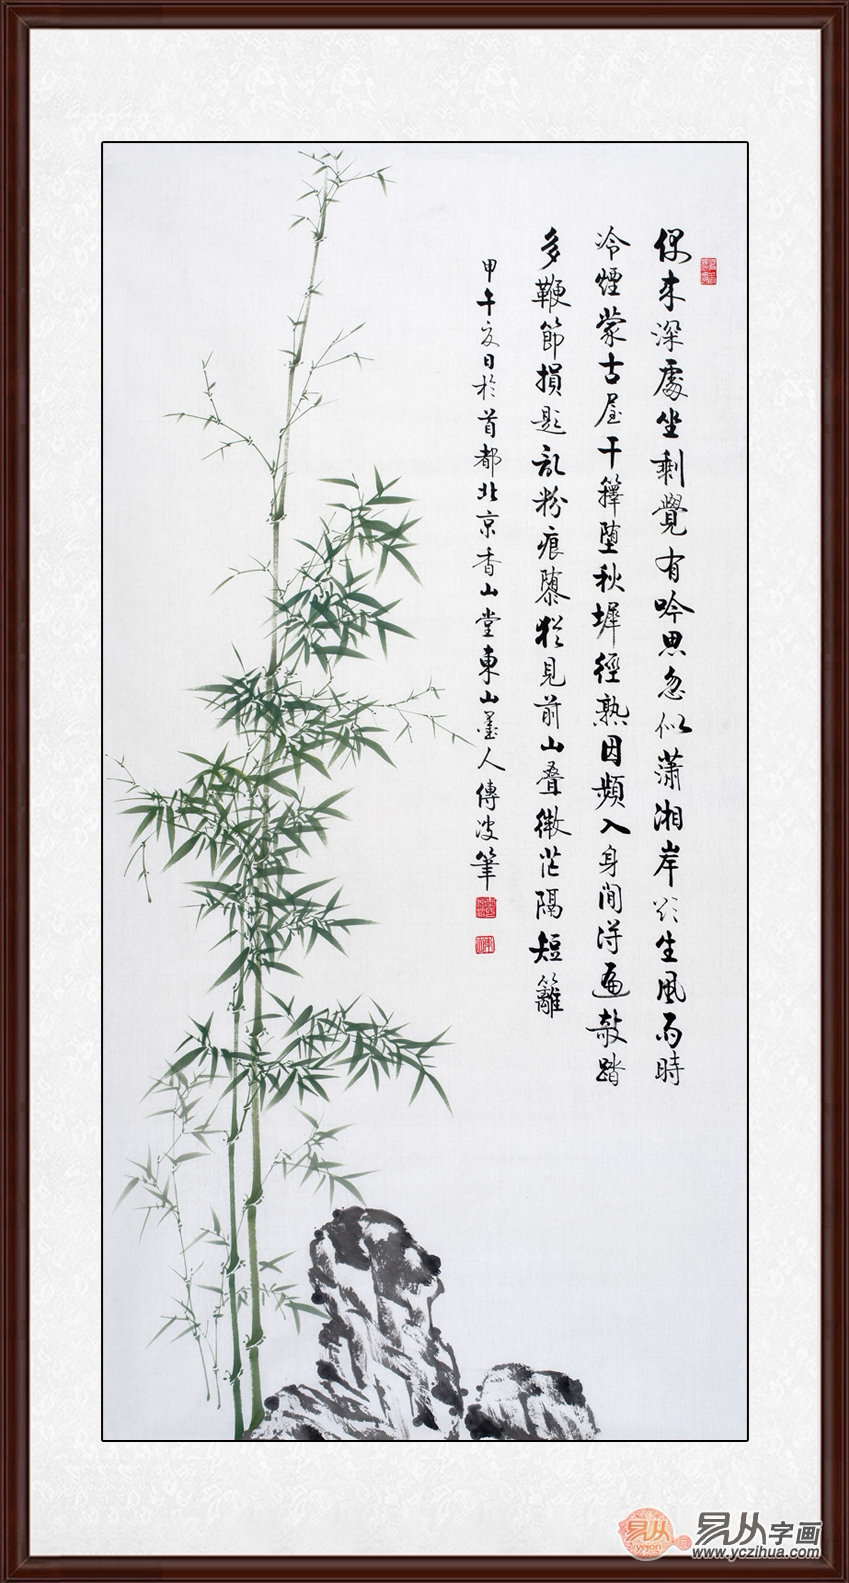 偶来深處坐剩覺有吟思忽似瀟湘岸欲生風雨時
冷煙蒙古屋干籜墮秋墀徑熟因頻入身閒得遍敲踏
多鞭節損題乱粉痕隳猶見前山叠微茫隔短籬
甲午夏日於首都北京香山堂東山墨人傳筆
易从
yejon
易从字画
www.yczihua.com